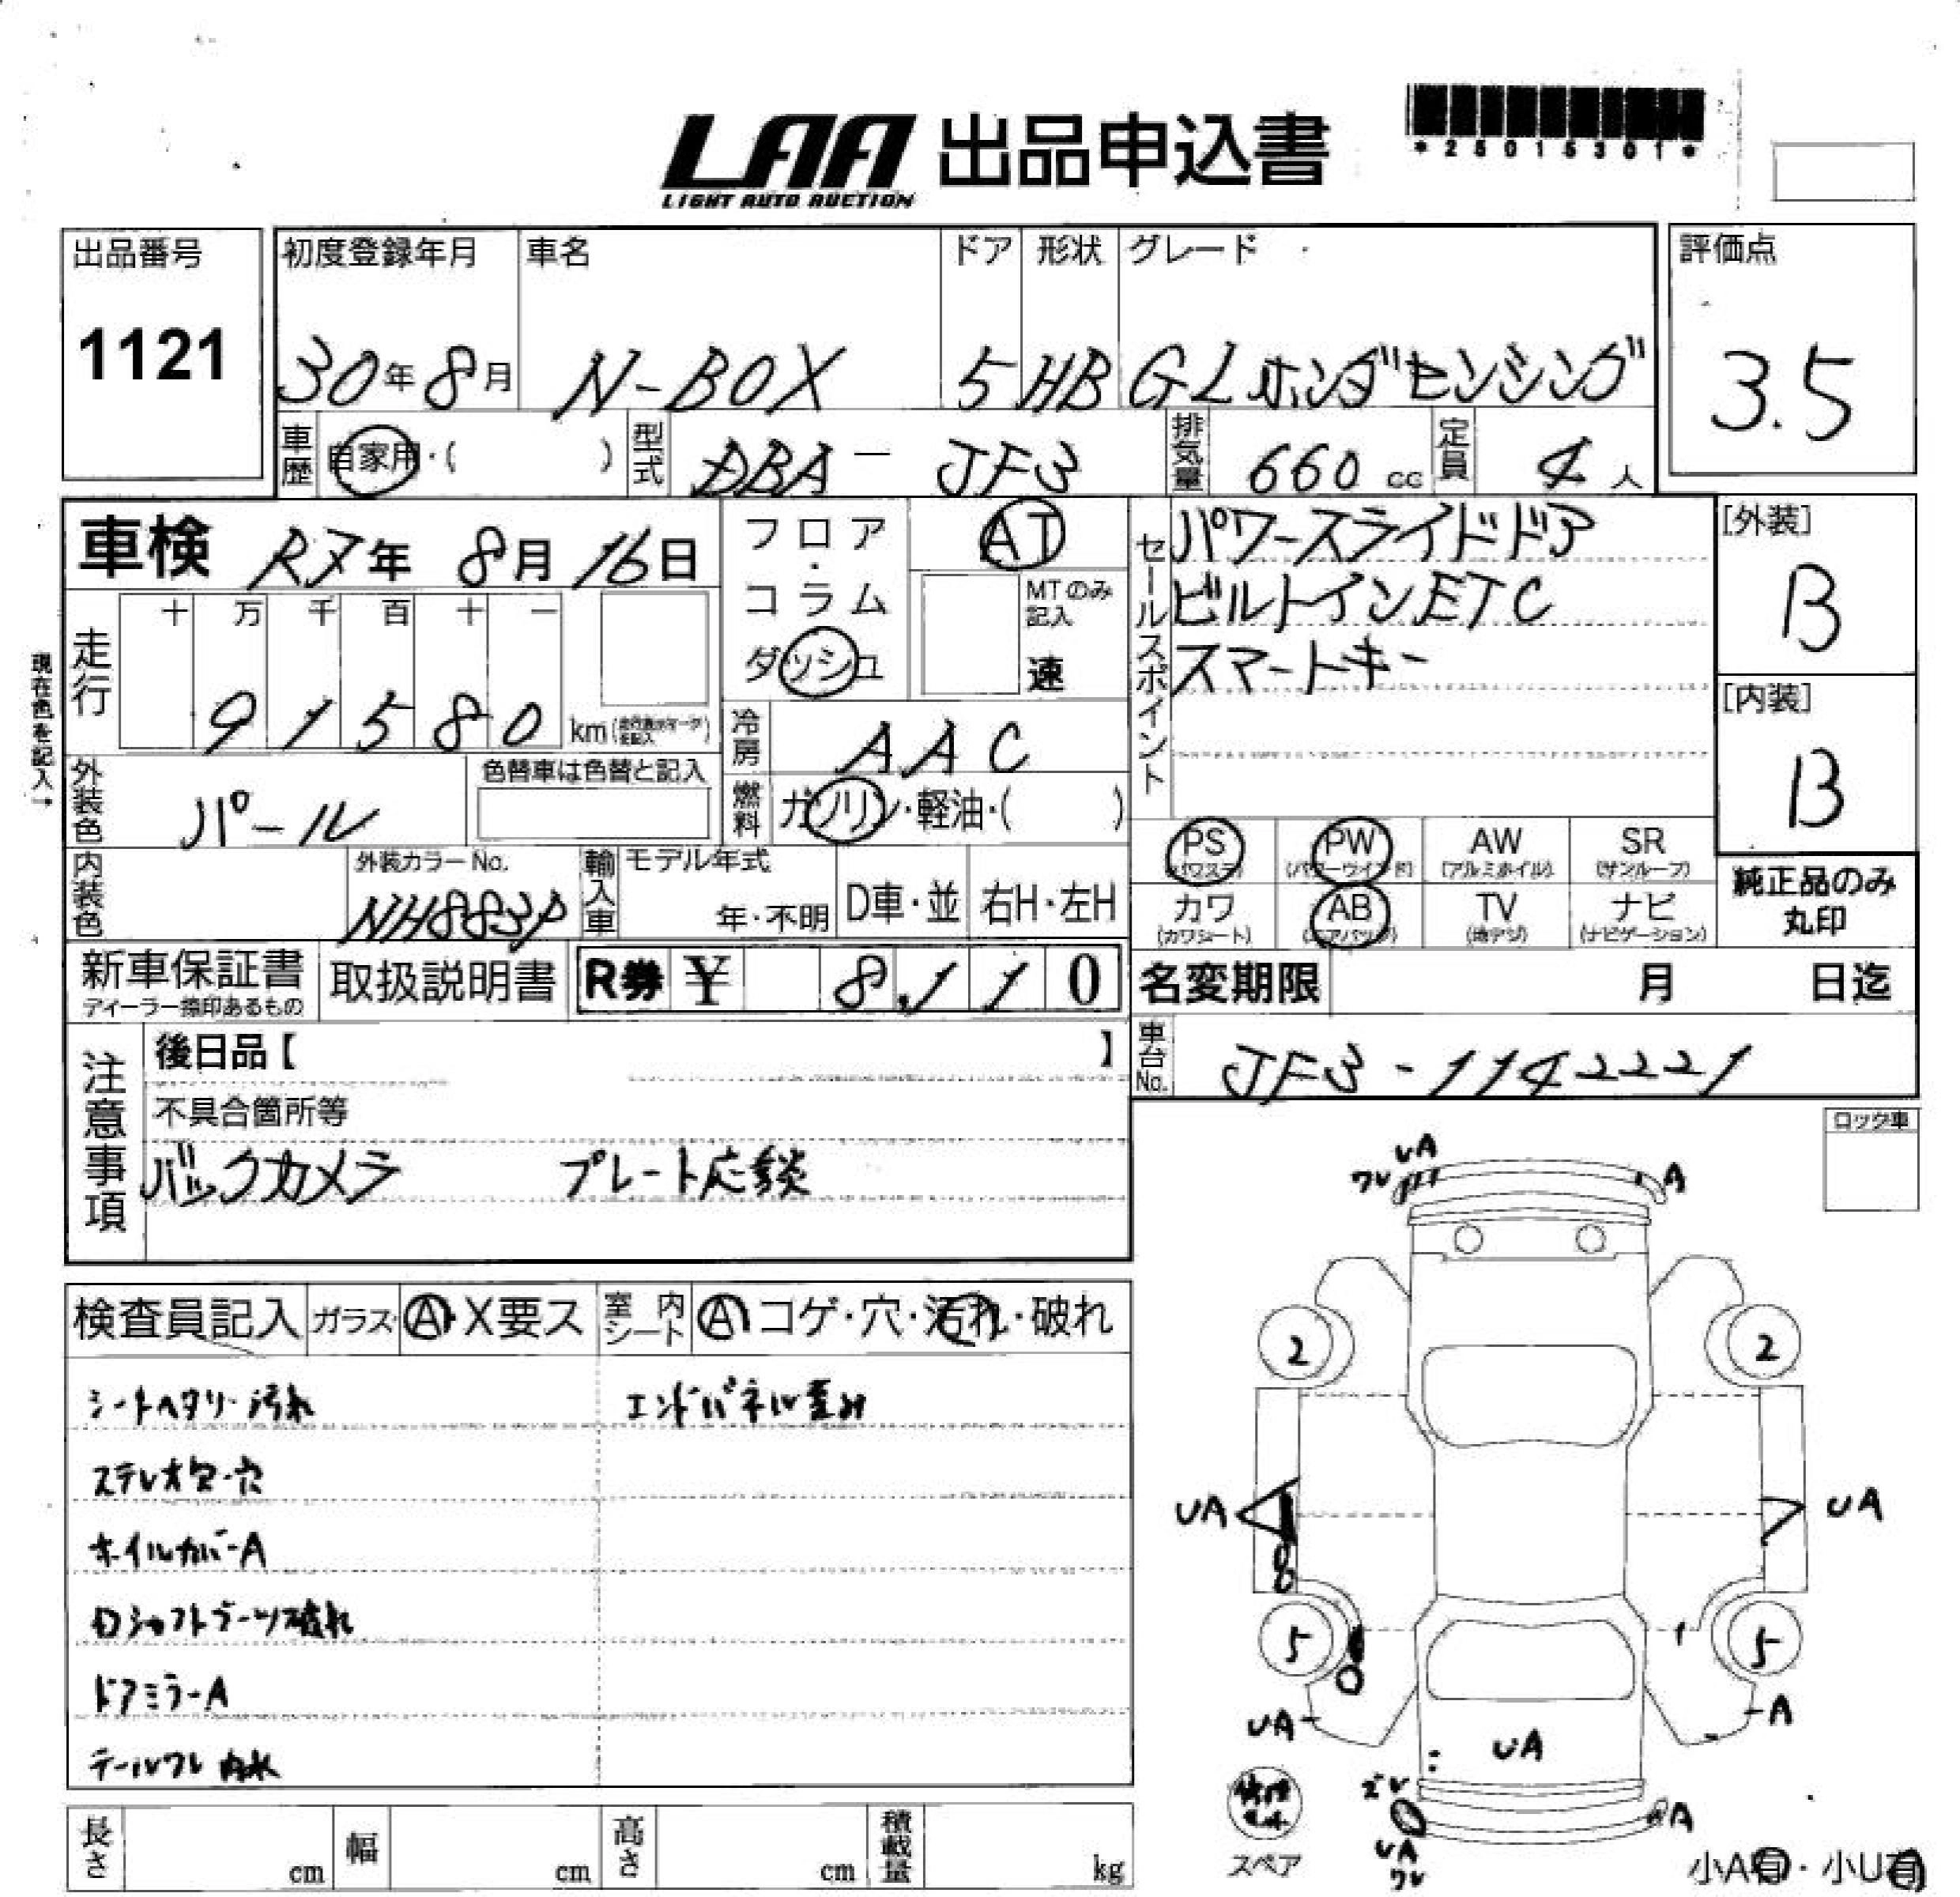 LAA 出品申込書
LIGHT AUTO AUCTION
*25015301*
出品番号
1121
初度登録年月 車名 ドア 形状 グレード
30年8月 N-BOX 5 HB G・Lホンダセンシング
評価点
3.5
車歴 自家用・( ) 型式 DBA-JF3 排気量 660 cc 定員 4 人
車検 R7年 8月 16日
フロア・コラム ダッシュ
AT
MTのみ記入
速
セールスポイント
パワースライドドア
ビルトインETC
スマートキー
[外装]
B
[内装]
B
現在色を記入→
走行 十 万 千 百 十 一
9 1 5 8 0 km
冷房 AAC
外装色 パール 色替車は色替と記入
燃料 ガソリン・軽油・( )
PS PW AW SR
(パワステ) (パワーウインド) (アルミホイル) (サンルーフ)
カワ AB TV ナビ
(カワシート) (エアバッグ) (地デジ) (ナビゲーション)
純正品のみ
丸印
内装色 外装カラーNo. NH883P
輸入車 モデル年式 年・不明 D車・並 右H・左H
新車保証書 取扱説明書 R券 ¥ 8,110
ディーラー捺印あるもの
名変期限 月 日迄
車台No. JF3-1142221
注意事項
後日品【 】
不具合箇所等
バックカメラ プレート応談
ロック車
検査員記入 ガラス A・X要ス 室内シート A コゲ・穴・汚れ・破れ
シートヘタリ・汚れ エンドパネル歪み
ステレオ欠・穴
ホイルカバーA
Dシャフトブーツ破れ
ドアミラーA
テールワレ 内水
UA
ワレ
A
2 2
UA UA
5 5
UA A
UA
ズレ
A
UA
ワレ
スペア
小A有・小U有
長さ cm 幅 cm 高さ cm 積載量 kg